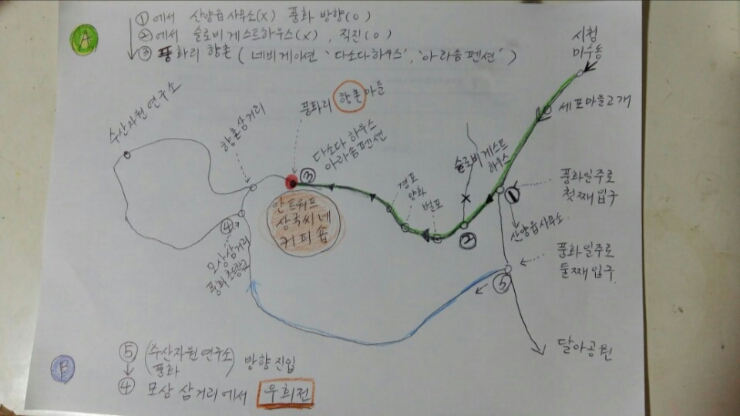 Ⓐ
① 에서 산양읍사무소(x) 풍화 방향(o)
② 에서 슬로비 게스트하우스(x), 직진(o)
③ 풍화리 향촌 (네비게이션 '다소다하우스', '아라솜펜션')
시청
미수동
세포마을고개
수산자원연구소
향촌삼거리
풍화리 향촌마을
다소다하우스
아라솜펜션
③
슬로비게스트
하우스
풍화일주로
첫째입구
①
산양읍사무소
②
경포
벌포
안트워프
상국씨네
커피숍
④
모상삼거리
풍화일주로
둘째입구
⑤
달아공원
Ⓑ
⑤ (수산자원연구소
풍화) 방향진입
④ 모상 삼거리에서 우회전